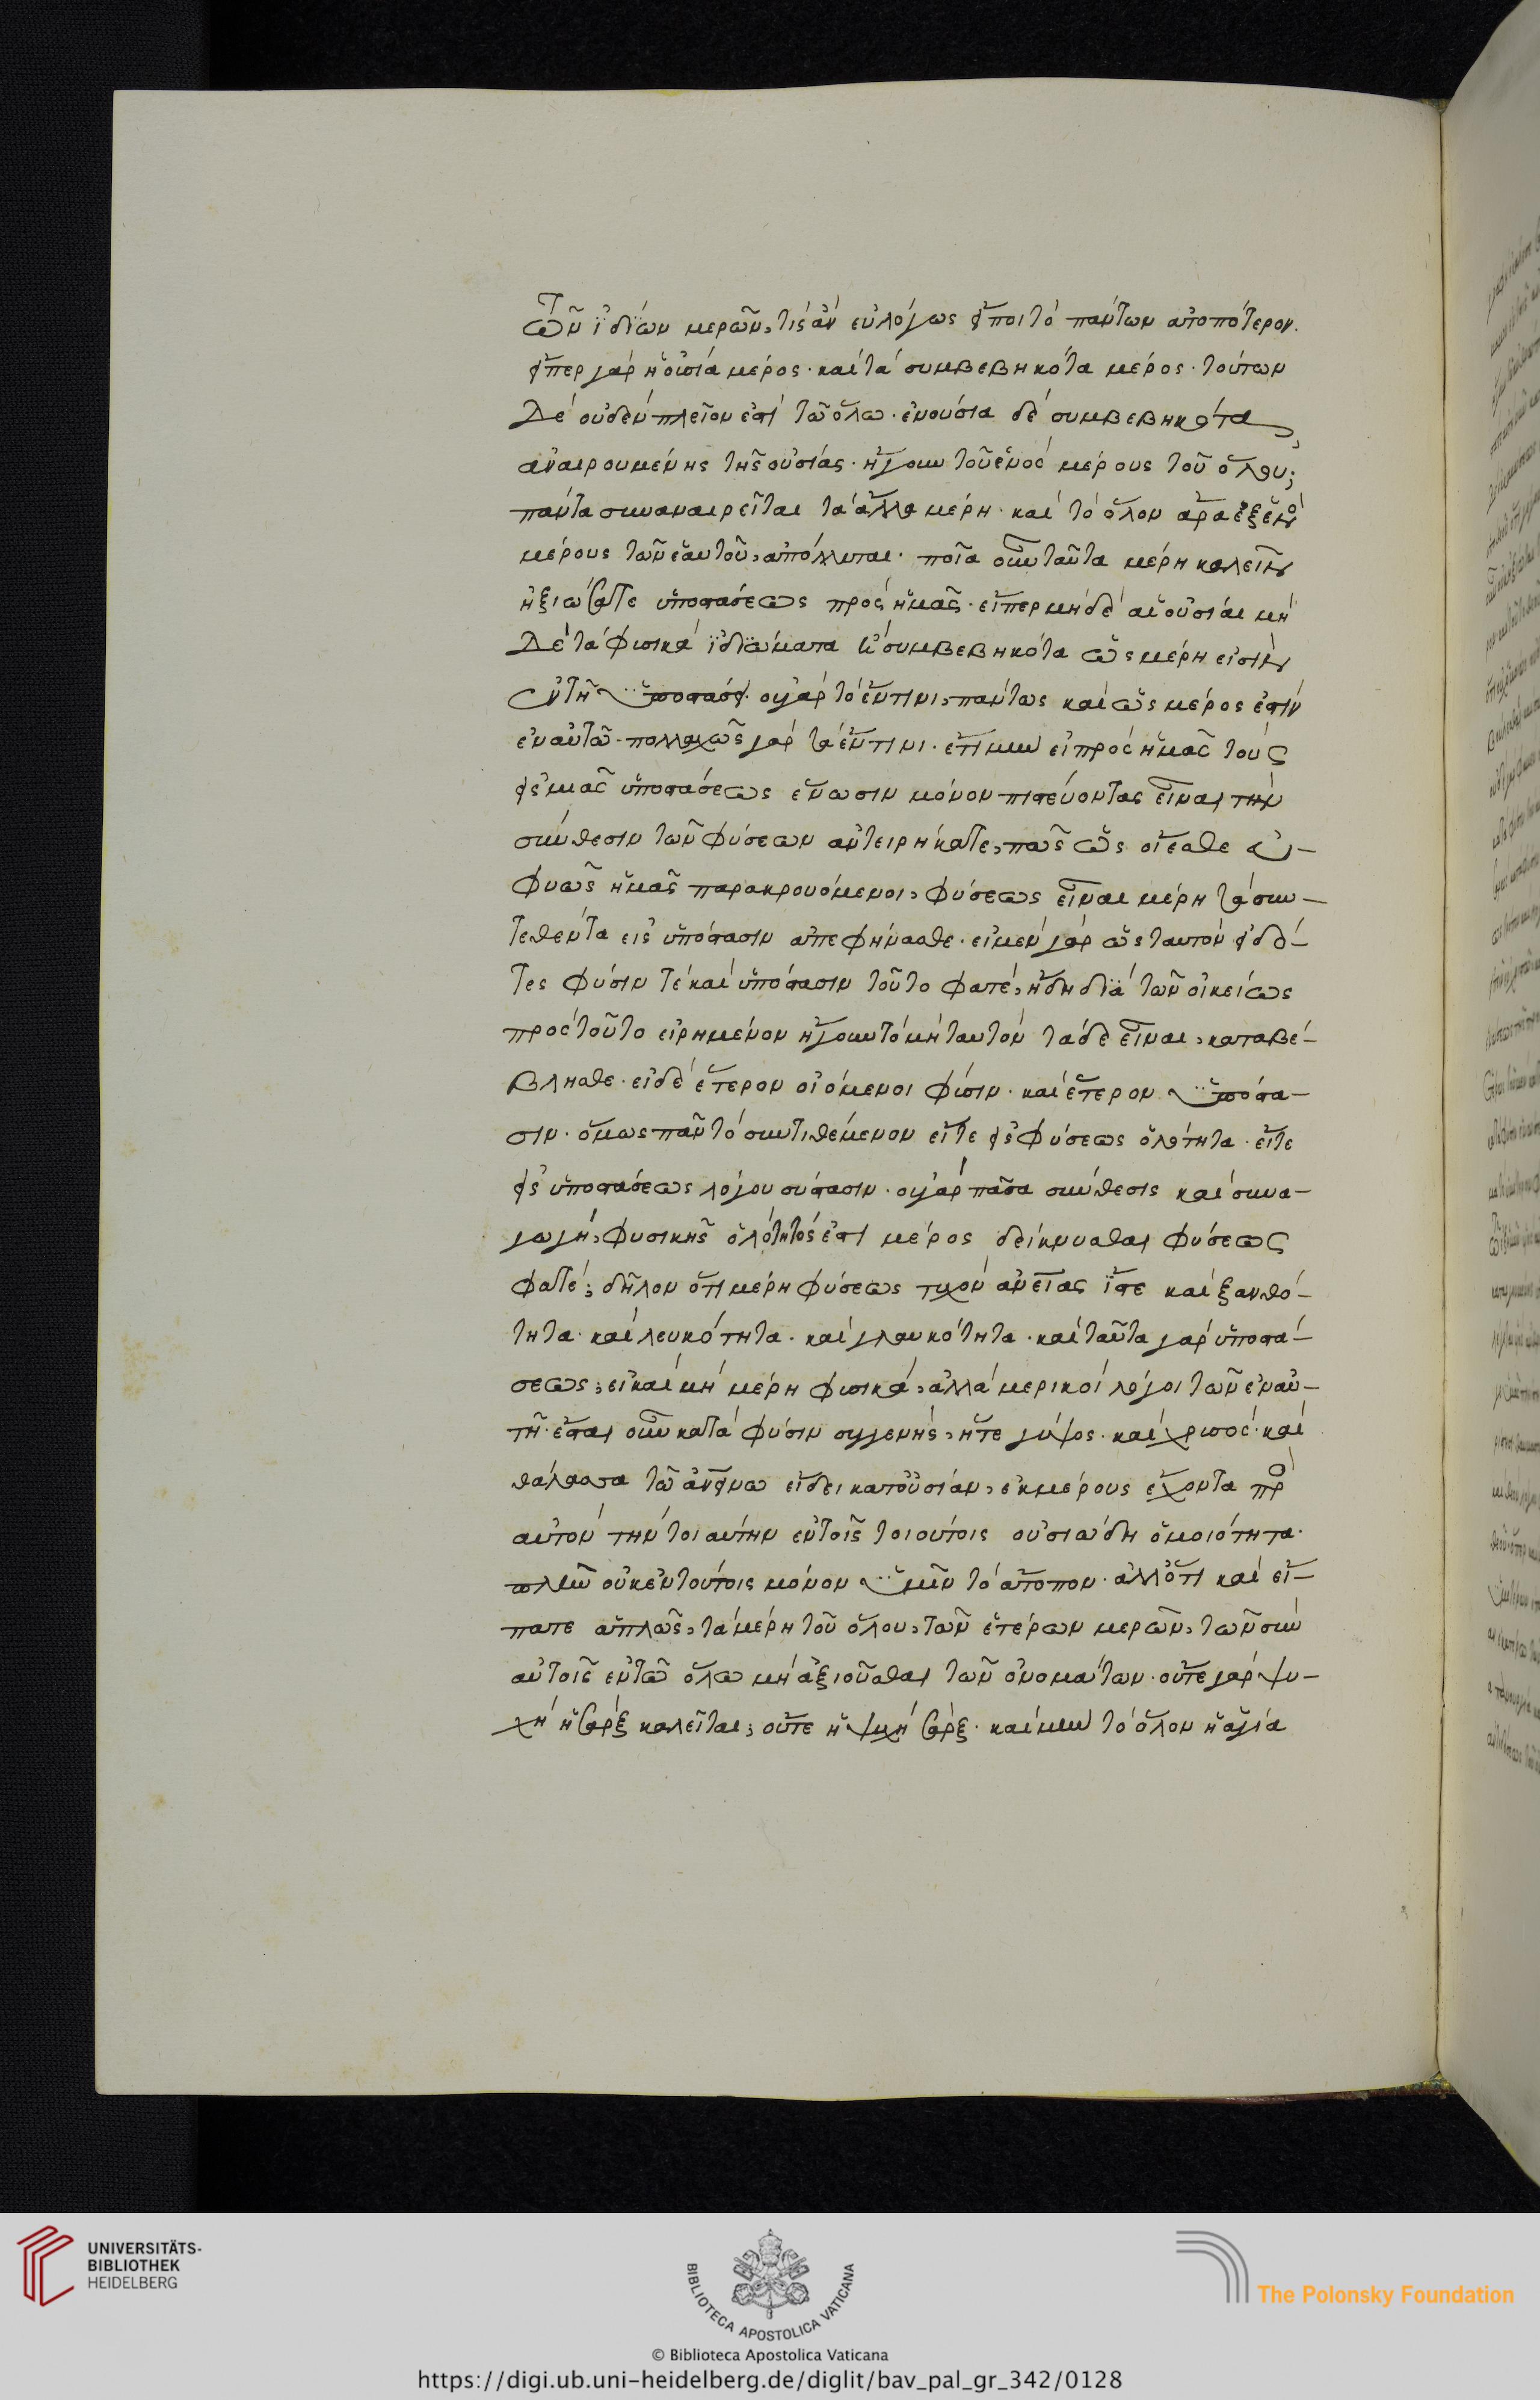 τῶν ἰδίων μερῶν, τίς ἂν εὐλόγως εἴποι τὸ πάντων ἀτοπώτερον.
εἴπερ γὰρ ἡ οὐσία μέρος· καὶ τὰ συμβεβηκότα μέρος· τούτων
δὲ οὐδὲν πλεῖον ἐστὶ τῷ ὅλῳ· ἐνούσια δὲ συμβεβηκότα,
ἀναιρουμένης τῆς οὐσίας· ἤγουν τοῦ ἑνὸς μέρους τοῦ ὅλου;
πάντα συναναιρεῖται τὰ ἄλλα μέρη· καὶ τὸ ὅλον ἄρα ἐξ ἑνὸς
μέρους τῶν ἑαυτοῦ, ἀπόλλυται· ποῖα οὖν ταῦτα μέρη καλεῖν
ἠξιώσατε ὑποστάσεως πρὸς ἡμᾶς· εἴπερ μηδὲ αἱ οὐσίαι μὴ
δὲ τὰ φυσικὰ ἰδιώματα ἢ συμβεβηκότα ὡς μέρη εἰσὶν
ἐν τῇ ὑποστάσει· οὐ γὰρ τὸ ἔν τινι, πάντως καὶ ὡς μέρος ἐστὶν
ἐν αὐτῷ· πολλαχῶς γὰρ τὰ ἔν τινι· ἔτι μὴν εἰ πρὸς ἡμᾶς τοὺς
εἰς μιᾶς ὑποστάσεως ἕνωσιν μόνον πιστεύοντας εἶναι τὴν
σύνθεσιν τῶν φύσεων ἀντειρήκατε, πῶς ὡς οἴεσθε εὐ-
φυῶς ἡμᾶς παρακρουόμενοι, φύσεως εἶναι μέρη τὰ συν-
τεθέντα εἰς ὑπόστασιν ἀπεφήνασθε· εἰ μὲν γὰρ ὡς ταυτὸν εἰδό-
τες φύσιν τὲ καὶ ὑπόστασιν τοῦτο φατέ, ἤδη διὰ τῶν οἰκείως
πρὸς τοῦτο εἰρημένον ἤγουν τὸ μὴ ταυτὸν τάδε εἶναι, καταβέ-
βλησθε· εἰ δὲ ἕτερον οἰόμενοι φύσιν· καὶ ἕτερον ὑπόστα-
σιν· ὅμως πᾶν τὸ συντιθέμενον εἴτε εἰς φύσεως ὁλότητα· εἴτε
εἰς ὑποστάσεως λόγου σύστασιν· οὐ γὰρ πᾶσα σύνθεσις καὶ συνα-
γωγή, φυσικῆς ὁλότητός ἐστι μέρος δείκνυσθαι φύσεως
φατέ; δῆλον ὅτι μέρη φύσεως τυχὸν ἀνεῖτας ἴστε καὶ ξανθό-
τητα· καὶ λευκότητα· καὶ γλαυκότητα· καὶ ταῦτα γὰρ ὑποστά-
σεως; εἰ καὶ μὴ μέρη φυσικά, ἀλλὰ μερικοὶ λόγοι τῶν ἐν αὐ-
τῇ· ἔσται οὖν κατὰ φύσιν συγγενής, ἥτε γύψος· καὶ χρυσός· καὶ
θάλασσα τῷ ἀνθρώπῳ εἴδει κατ' οὐσίαν, ἐκ μέρους ἔχοντα πρὸς
αὐτὸν τὴν τοιαύτην ἐν τοῖς τοιούτοις οὐσιώδη ὁμοιότητα·
πλὴν οὐκ ἐν τούτοις μόνον ὑμῖν τὸ ἄτοπον· ἀλλ' ὅτι καὶ εἴ-
πατε ἁπλῶς, τὰ μέρη τοῦ ὅλου, τῶν ἑτέρων μερῶν, τῶν σὺν
αὐτοῖς ἐν τῷ ὅλῳ μὴ ἀξιοῦσθαι τῶν ὀνομάτων· οὔτε γὰρ ψυ-
χὴ ἡ σὰρξ καλεῖται; οὔτε ἡ ψυχὴ σάρξ· καὶ μὴν τὸ ὅλον ἡ ἁγία
UNIVERSITÄTS-
BIBLIOTHEK
HEIDELBERG
BIBLIOTECA APOSTOLICA VATICANA
The Polonsky Foundation
© Biblioteca Apostolica Vaticana
https://digi.ub.uni-heidelberg.de/diglit/bav_pal_gr_342/0128